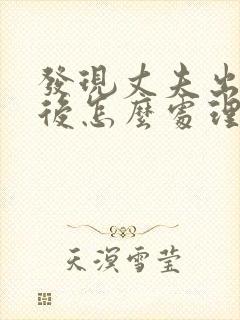 發現丈夫出
後怎麼處理
天溟雪莹